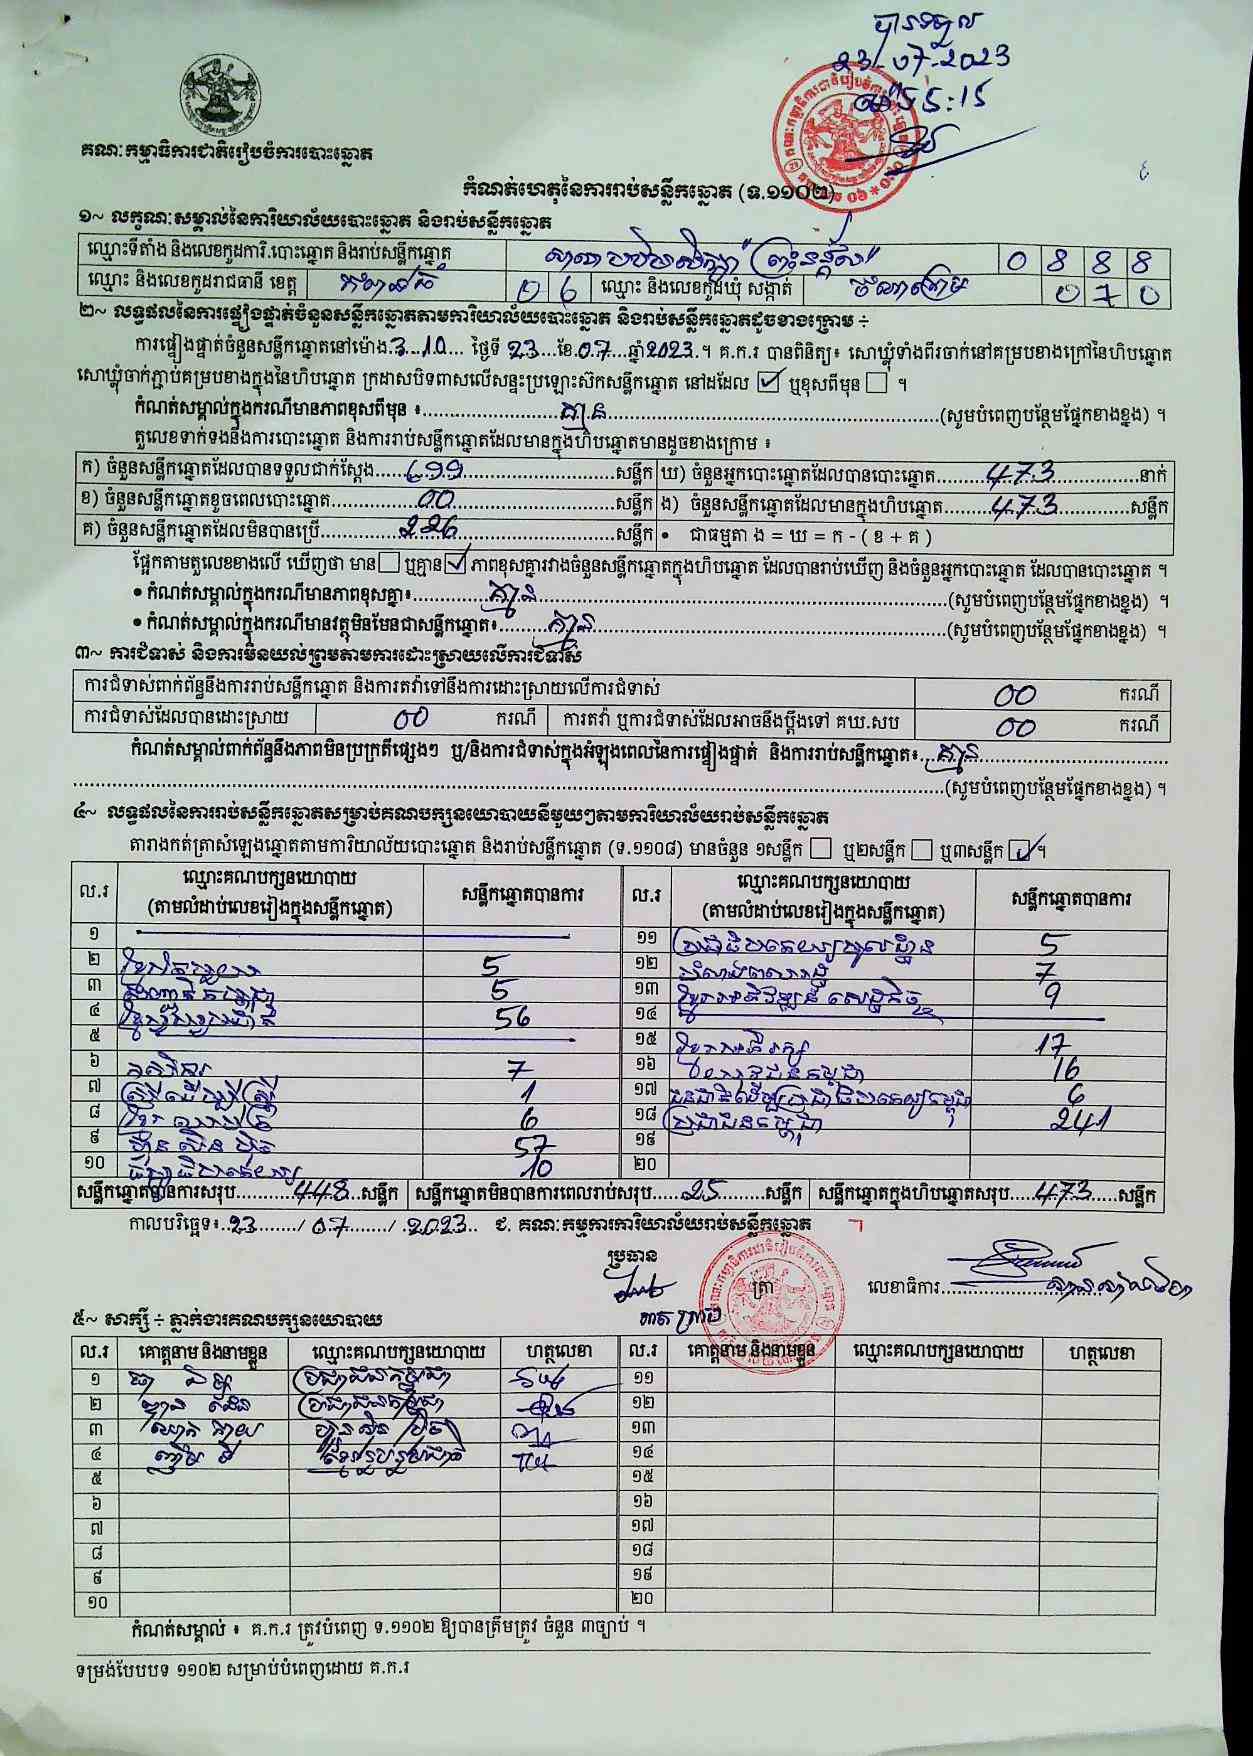 23-07-2023
គណៈកម្មាធិការជាតិរៀបចំការបោះឆ្នោត
កំណត់ហេតុនៃការរាប់សន្លឹកឆ្នោត (ទ.១១០២)
១~ លក្ខណៈសម្គាល់នៃការិយាល័យបោះឆ្នោត និងរាប់សន្លឹកឆ្នោត
ឈ្មោះទីតាំង និងលេខកូដការិ.បោះឆ្នោត និងរាប់សន្លឹកឆ្នោត 0 8 8 8
ឈ្មោះ និងលេខកូដរាជធានី ខេត្ត កំពង់ធំ 0 6 ឈ្មោះ និងលេខកូដឃុំ សង្កាត់ 0 7 0
២~ លទ្ធផលនៃការផ្ទៀងផ្ទាត់ចំនួនសន្លឹកឆ្នោតតាមការិយាល័យបោះឆ្នោត និងរាប់សន្លឹកឆ្នោតដូចខាងក្រោម ÷
ការផ្ទៀងផ្ទាត់ចំនួនសន្លឹកឆ្នោតនៅម៉ោង 3 10 ថ្ងៃទី 23 ខែ 07 ឆ្នាំ 2023 ។ គ.ក.រ បានពិនិត្យ៖ សោឃ្លុំទាំងពីរចាក់នៅគម្របខាងក្រៅនៃហិបឆ្នោត
សោឃ្លុំចាក់ភ្ជាប់គម្របខាងក្នុងនៃហិបឆ្នោត ក្រដាសបិទពាសលើសន្ទះប្រឡោះស៊កសន្លឹកឆ្នោត នៅដដែល ☑ ឬខុសពីមុន ☐ ។
កំណត់សម្គាល់ក្នុងករណីមានភាពខុសពីមុន ៖ គ្មាន (សូមបំពេញបន្ថែមផ្នែកខាងខ្នង) ។
តួលេខទាក់ទងនឹងការបោះឆ្នោត និងការរាប់សន្លឹកឆ្នោតដែលមានក្នុងហិបឆ្នោតមានដូចខាងក្រោម ៖
ក) ចំនួនសន្លឹកឆ្នោតដែលបានទទួលជាក់ស្តែង 699 សន្លឹក ឃ) ចំនួនអ្នកបោះឆ្នោតដែលបានបោះឆ្នោត 473 នាក់
ខ) ចំនួនសន្លឹកឆ្នោតខូចពេលបោះឆ្នោត 00 សន្លឹក ង) ចំនួនសន្លឹកឆ្នោតដែលមានក្នុងហិបឆ្នោត 473 សន្លឹក
គ) ចំនួនសន្លឹកឆ្នោតដែលមិនបានប្រើ 226 សន្លឹក • ជាធម្មតា ង = ឃ = ក - ( ខ + គ )
ផ្អែកតាមតួលេខខាងលើ ឃើញថា មាន ☐ ឬគ្មាន ☑ ភាពខុសគ្នារវាងចំនួនសន្លឹកឆ្នោតក្នុងហិបឆ្នោត ដែលបានរាប់ឃើញ និងចំនួនអ្នកបោះឆ្នោត ដែលបានបោះឆ្នោត ។
• កំណត់សម្គាល់ក្នុងករណីមានភាពខុសគ្នា៖ គ្មាន (សូមបំពេញបន្ថែមផ្នែកខាងខ្នង) ។
• កំណត់សម្គាល់ក្នុងករណីមានវត្ថុមិនមែនជាសន្លឹកឆ្នោត៖ គ្មាន (សូមបំពេញបន្ថែមផ្នែកខាងខ្នង) ។
៣~ ការជំទាស់ និងការមិនយល់ព្រមតាមការដោះស្រាយលើការជំទាស់
ការជំទាស់ពាក់ព័ន្ធនឹងការរាប់សន្លឹកឆ្នោត និងការតវ៉ាទៅនឹងការដោះស្រាយលើការជំទាស់ 00 ករណី
ការជំទាស់ដែលបានដោះស្រាយ 00 ករណី ការតវ៉ា ឬការជំទាស់ដែលអាចនឹងប្តឹងទៅ គឃ.សប 00 ករណី
កំណត់សម្គាល់ពាក់ព័ន្ធនឹងភាពមិនប្រក្រតីផ្សេងៗ ឬ/និងការជំទាស់ក្នុងអំឡុងពេលនៃការផ្ទៀងផ្ទាត់ និងការរាប់សន្លឹកឆ្នោត៖ គ្មាន
(សូមបំពេញបន្ថែមផ្នែកខាងខ្នង) ។
៤~ លទ្ធផលនៃការរាប់សន្លឹកឆ្នោតសម្រាប់គណបក្សនយោបាយនីមួយៗតាមការិយាល័យរាប់សន្លឹកឆ្នោត
តារាងកត់ត្រាសំឡេងឆ្នោតតាមការិយាល័យបោះឆ្នោត និងរាប់សន្លឹកឆ្នោត (ទ.១១០៨) មានចំនួន ១សន្លឹក ☐ ឬ២សន្លឹក ☐ ឬ៣សន្លឹក ☑ ។
ល.រ ឈ្មោះគណបក្សនយោបាយ (តាមលំដាប់លេខរៀងក្នុងសន្លឹកឆ្នោត) សន្លឹកឆ្នោតបានការ ល.រ ឈ្មោះគណបក្សនយោបាយ (តាមលំដាប់លេខរៀងក្នុងសន្លឹកឆ្នោត) សន្លឹកឆ្នោតបានការ
១ ១១ ប្រជាធិបតេយ្យមូលដ្ឋាន 5
២ 5 ១២ កម្លាំងពលរដ្ឋ 7
៣ 5 ១៣ ខ្មែរអភិវឌ្ឍន៍សេដ្ឋកិច្ច 9
៤ ខ្មែររួបរួមជាតិ 56 ១៤
៥ ១៥ ខ្មែរអភិរក្ស 17
៦ 7 ១៦ 16
៧ ស្ត្រីដើម្បីស្ត្រី 1 ១៧ ជនជាតិដើមប្រជាធិបតេយ្យកម្ពុជា 6
៨ 6 ១៨ ប្រជាជនកម្ពុជា 241
៩ ហ៊្វុនស៊ិនប៉ិច 57 ១៩
១០ 10 ២០
សន្លឹកឆ្នោតបានការសរុប 448 សន្លឹក សន្លឹកឆ្នោតមិនបានការពេលរាប់សរុប 25 សន្លឹក សន្លឹកឆ្នោតក្នុងហិបឆ្នោតសរុប 473 សន្លឹក
កាលបរិច្ឆេទ៖ 23 / 07 / 2023 ជ. គណៈកម្មការការិយាល័យរាប់សន្លឹកឆ្នោត
ប្រធាន ត្រា លេខាធិការ
៥~ សាក្សី ÷ ភ្នាក់ងារគណបក្សនយោបាយ
ល.រ គោត្តនាម និងនាមខ្លួន ឈ្មោះគណបក្សនយោបាយ ហត្ថលេខា ល.រ គោត្តនាម និងនាមខ្លួន ឈ្មោះគណបក្សនយោបាយ ហត្ថលេខា
១ ប្រជាជនកម្ពុជា ១១
២ ប្រជាជនកម្ពុជា ១២
៣ ហ៊្វុនស៊ិនប៉ិច ១៣
៤ ខ្មែររួបរួមជាតិ ១៤
៥ ១៥
៦ ១៦
៧ ១៧
៨ ១៨
៩ ១៩
១០ ២០
កំណត់សម្គាល់ ៖ គ.ក.រ ត្រូវបំពេញ ទ.១១០២ ឱ្យបានត្រឹមត្រូវ ចំនួន ៣ច្បាប់ ។
ទម្រង់បែបបទ ១១០២ សម្រាប់បំពេញដោយ គ.ក.រ